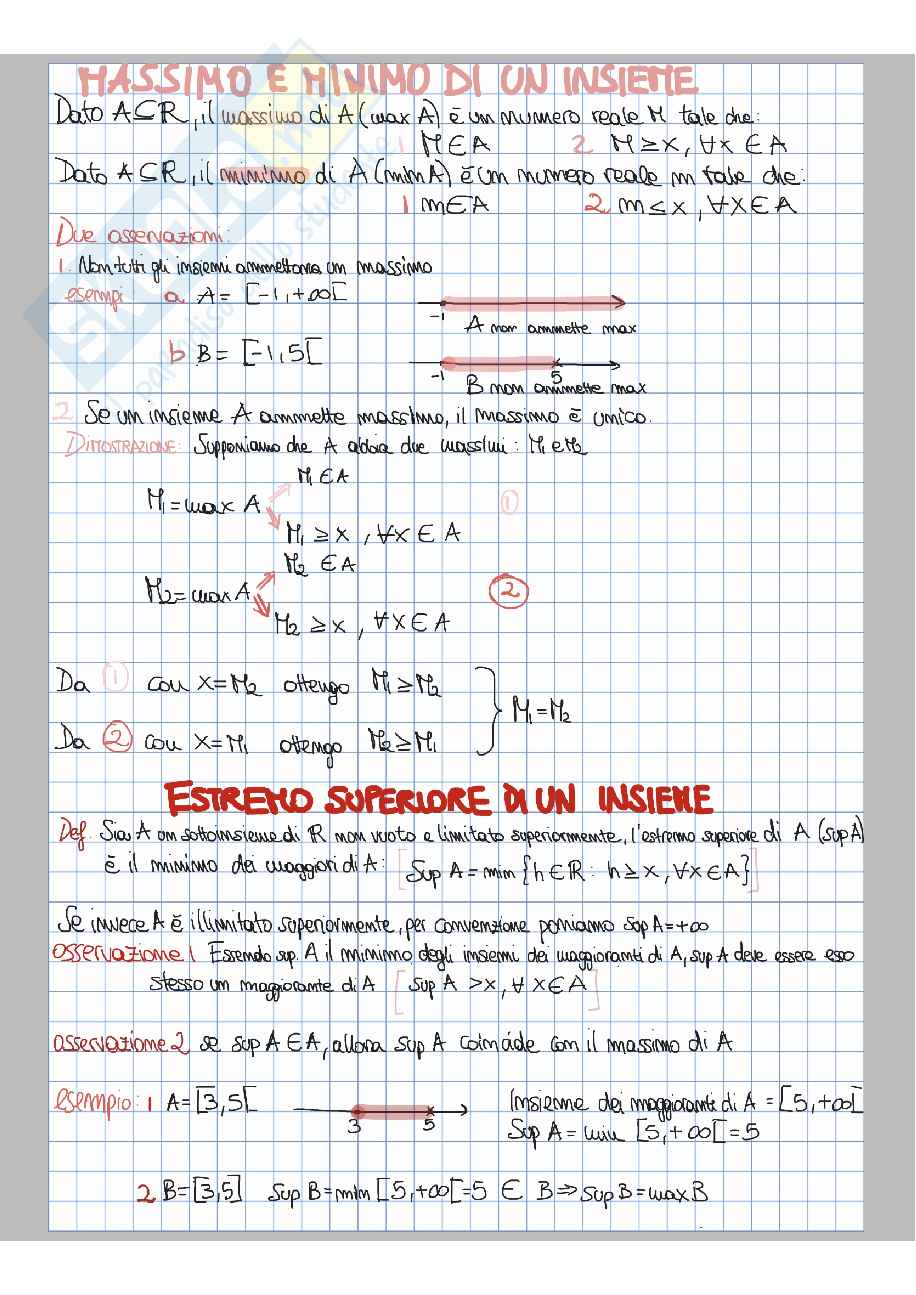 MASSIMO E MINIMO DI UN INSIEME
Dato A⊆R, il massimo di A (max A) è un numero reale M tale che:
1 M∈A 2 M≥x, ∀x ∈A
Dato A⊆R, il minimo di A (min A) è un numero reale m tale che:
1 m∈A 2 m≤x, ∀x∈A
Due osservazioni:
1. Non tutti gli insiemi ammettono un massimo
esempi a A= [-1,+∞[
-1 A non ammette max
b B= [-1,5[
-1 5
B non ammette max
2 Se un insieme A ammette massimo, il massimo è unico.
DIMOSTRAZIONE: Supponiamo che A abbia due massimi: M₁ e M₂
M₁∈A
M₁=max A ①
M₁ ≥x, ∀x∈A
M₂ ∈A
M₂=max A ②
M₂ ≥x, ∀x∈A
Da ① con x=M₂ ottengo M₁≥M₂
M₁=M₂
Da ② con x=M₁ ottengo M₂≥M₁
ESTREMO SUPERIORE DI UN INSIEME
Def. Sia A un sottoinsieme di R non vuoto e limitato superiormente, l'estremo superiore di A (sup A)
è il minimo dei maggiori di A: [Sup A=min {h∈R: h≥x, ∀x∈A}]
Se invece A è illimitato superiormente, per convenzione poniamo sup A=+∞
osservazione 1 Essendo sup. A il minimo degli insiemi dei maggioranti di A, sup A deve essere esso
stesso un maggiorante di A [Sup A >x, ∀ x∈A]
osservazione 2 se sup A∈A, allora sup A coincide con il massimo di A
esempio: 1 A=[3,5[ 3 5 Insieme dei maggioranti di A =[5,+∞[
Sup A= min [5,+∞[=5
2 B=[3,5] Sup B=min [5,+∞[=5 ∈ B⇒sup B=max B